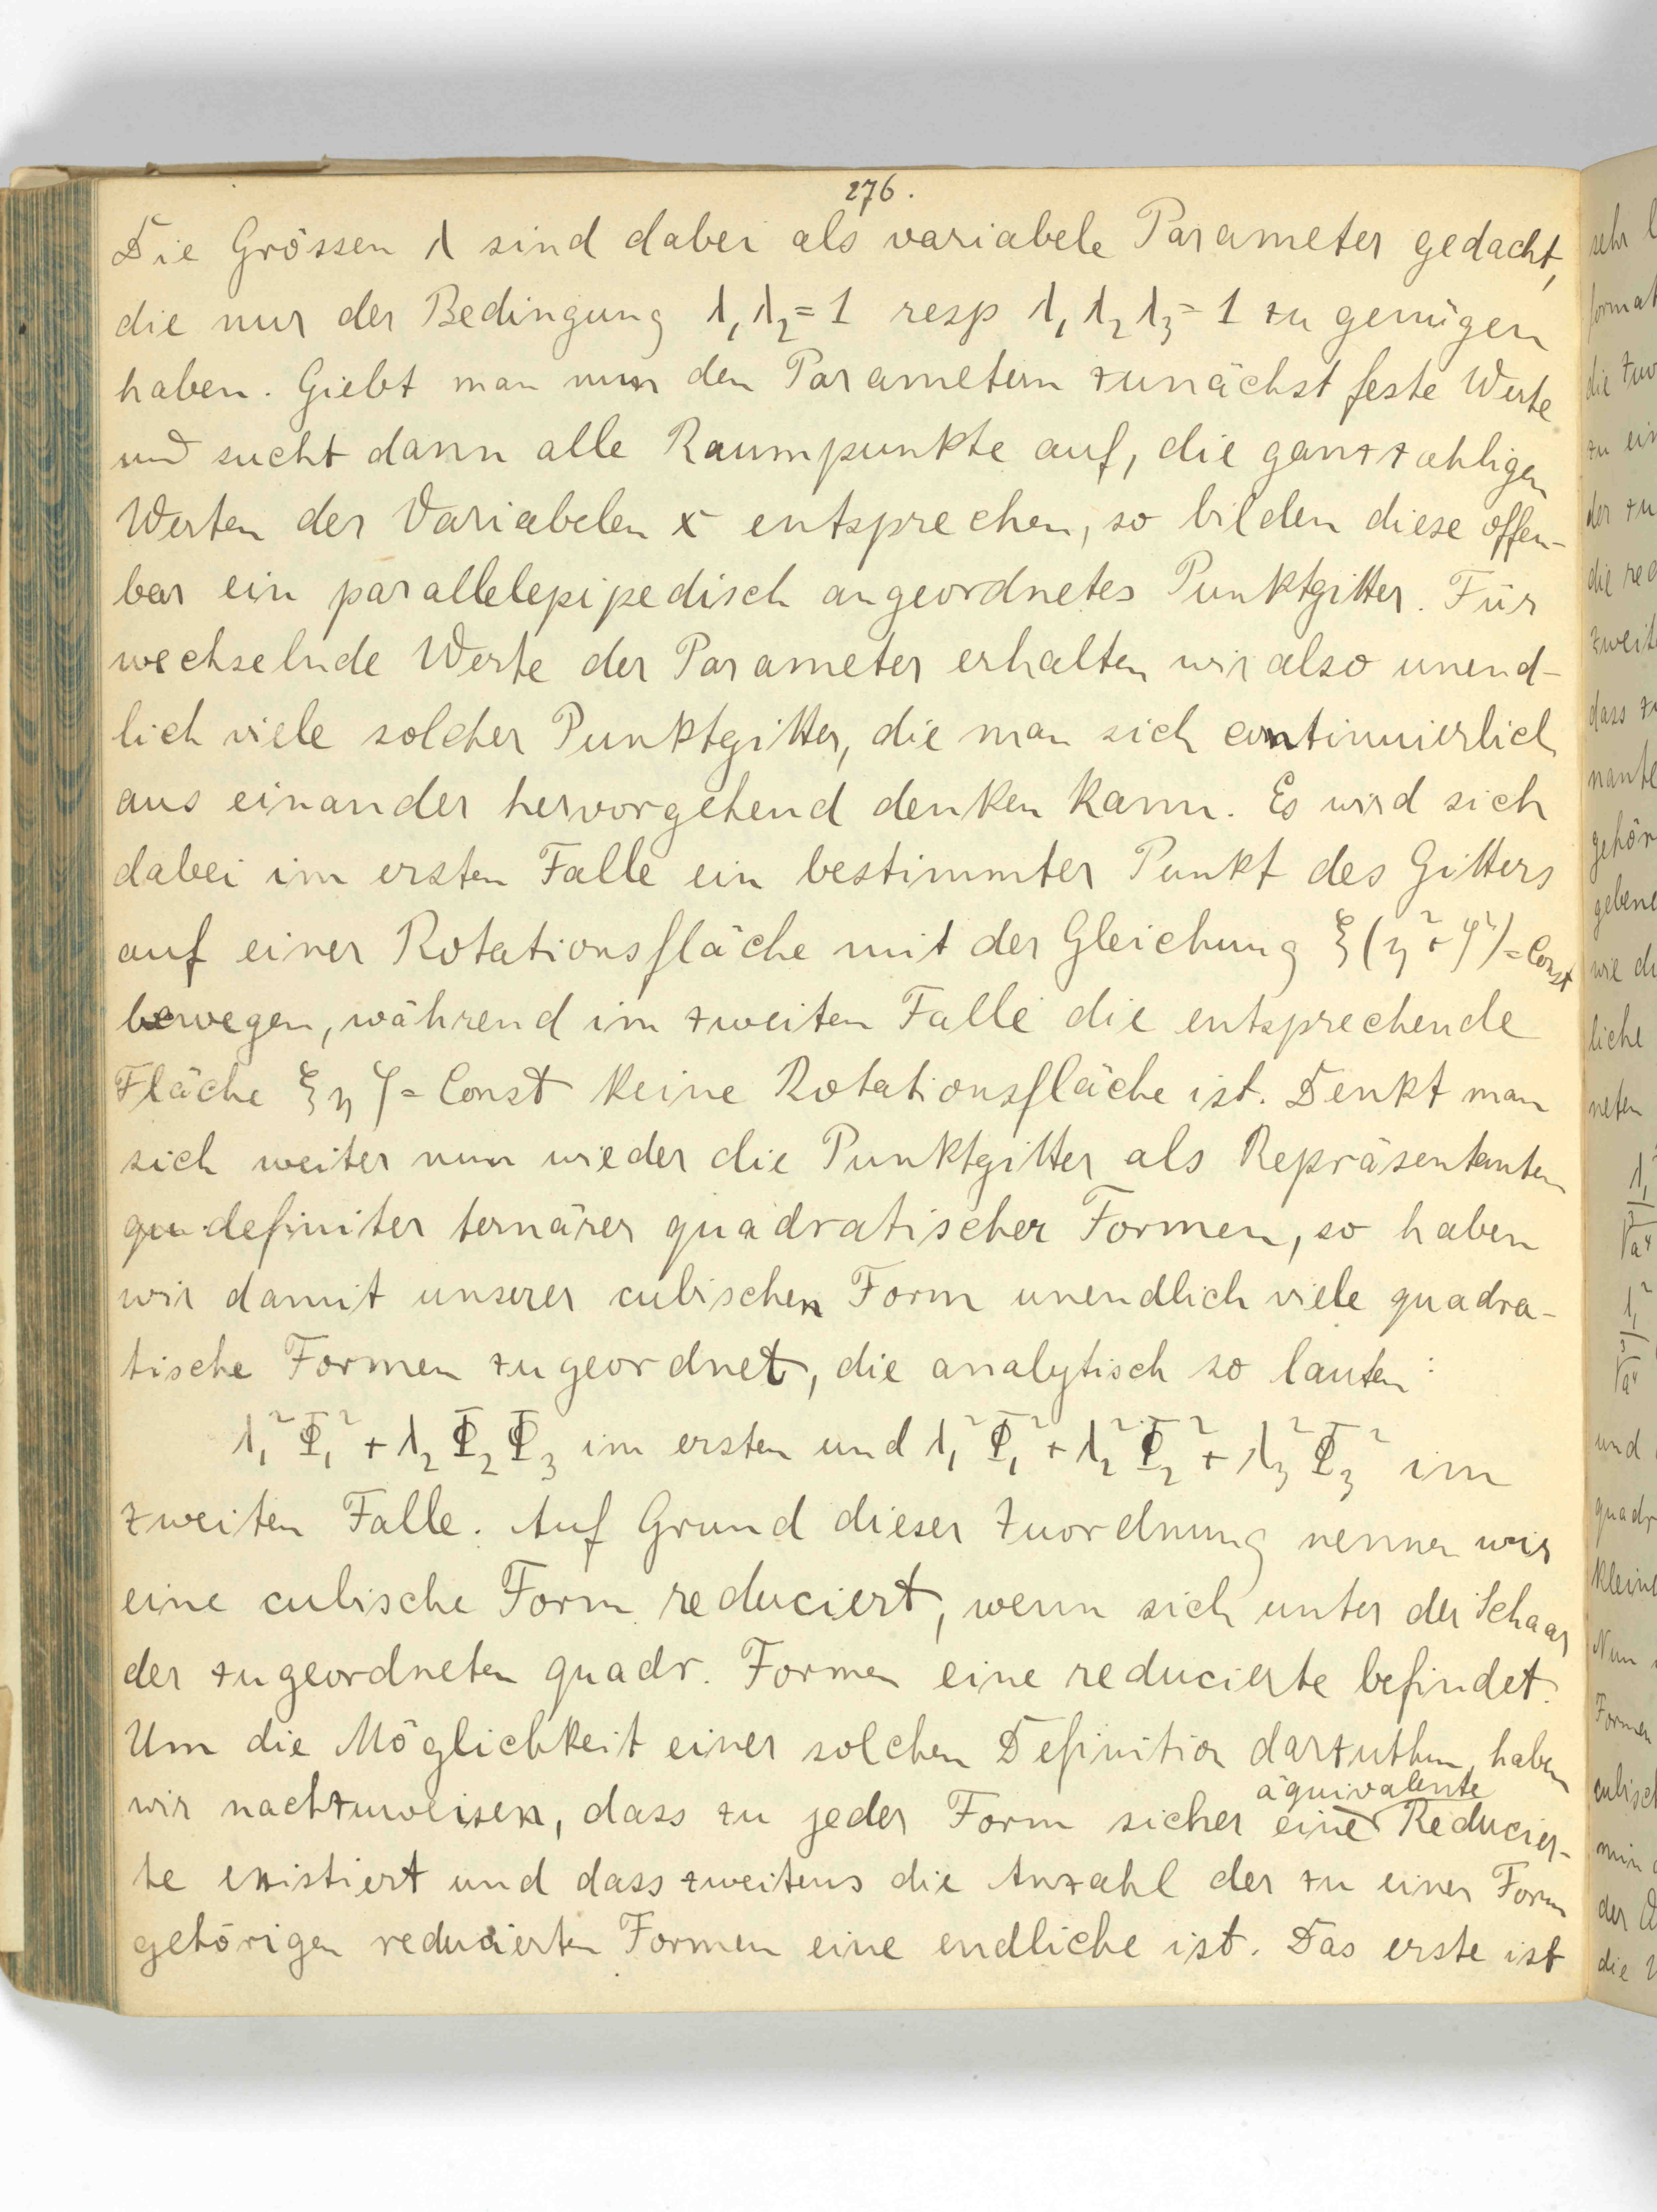 276.
Die Grössen λ sind dabei als variabele Parameter gedacht,
die nur der Bedingung λ₁λ₂=1 resp λ₁λ₂λ₃=1 zu genügen
haben. Giebt man nun den Parametern zunächst feste Werte
und sucht dann alle Raumpunkte auf, die ganzzahligen
Werten der Variabelen x entsprechen, so bilden diese offen-
bar ein parallelepipedisch angeordnetes Punktgitter. Für
wechselnde Werte der Parameter erhalten wir also unend-
lich viele solcher Punktgitter, die man sich continuierlich
aus einander hervorgehend denken kann. Es wird sich
dabei im ersten Falle ein bestimmter Punkt des Gitters
auf einer Rotationsfläche mit der Gleichung ξ(η²+ζ²)=Const
bewegen, während im zweiten Falle die entsprechende
Fläche ξηζ=Const keine Rotationsfläche ist. Denkt man
sich weiter nun wieder die Punktgitter als Repräsentanten
definiter ternärer quadratischer Formen, so haben
wir damit unserer cubischen Form unendlich viele quadra-
tische Formen zugeordnet, die analytisch so lauten:
λ₁²Φ₁²+λ₂Φ₂Φ₃ im ersten und λ₁²Φ₁²+λ₂²Φ₂²+λ₃²Φ₃² im
zweiten Falle. Auf Grund dieser Zuordnung nennen wir
eine cubische Form reduciert, wenn sich unter der Schaar
der zugeordneten quadr. Formen eine reducierte befindet.
Um die Möglichkeit einer solchen Definition darzuthun, haben
wir nachzuweisen, dass zu jeder Form sicher eine äquivalente Reducier-
te existiert und dass zweitens die Anzahl der zu einer Form
gehörigen reducierten Formen eine endliche ist. Das erste ist